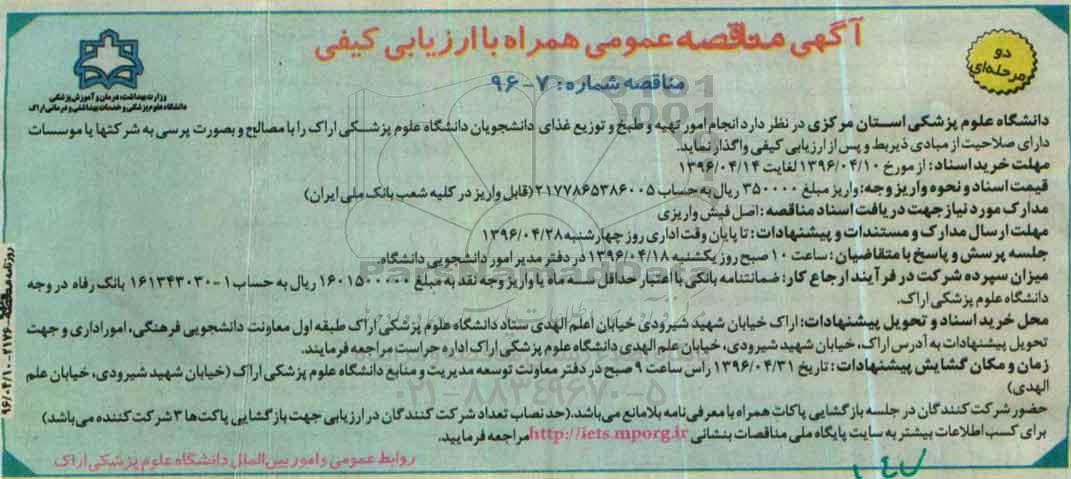 آگهی مناقصه عمومی همراه با ارزیابی کیفی
دو مرحله‌ای
مناقصه شماره: ۷-۹۶
وزارت بهداشت، درمان و آموزش پزشکی
دانشگاه علوم پزشکی و خدمات بهداشتی و درمانی اراک
دانشگاه علوم پزشکی استان مرکزی در نظر دارد انجام امور تهیه و طبخ و توزیع غذای دانشجویان دانشگاه علوم پزشکی اراک را با مصالح و بصورت پرسی به شرکتها یا موسسات
دارای صلاحیت از مبادی ذیربط و پس از ارزیابی کیفی واگذار نماید.
مهلت خرید اسناد: از مورخ ۱۳۹۶/۰۴/۱۰ لغایت ۱۳۹۶/۰۴/۱۴
قیمت اسناد و نحوه واریز وجه: واریز مبلغ ۳۵۰۰۰۰ ریال به حساب ۲۱۷۷۸۶۵۳۸۶۰۰۵ (قابل واریز در کلیه شعب بانک ملی ایران)
مدارک مورد نیاز جهت دریافت اسناد مناقصه: اصل فیش واریزی
مهلت ارسال مدارک و مستندات و پیشنهادات: تا پایان وقت اداری روز چهارشنبه ۱۳۹۶/۰۴/۲۸
جلسه پرسش و پاسخ با متقاضیان: ساعت ۱۰ صبح روز یکشنبه ۱۳۹۶/۰۴/۱۸ در دفتر مدیر امور دانشجویی دانشگاه.
میزان سپرده شرکت در فرآیند ارجاع کار: ضمانتنامه بانکی با اعتبار حداقل سه ماه یا واریز وجه نقد به مبلغ ۱۶۰۱۵۰۰۰۰۰ ریال به حساب ۱-۱۶۱۳۴۳۰۳۰ بانک رفاه در وجه
دانشگاه علوم پزشکی اراک.
محل خرید اسناد و تحویل پیشنهادات: اراک خیابان شهید شیرودی خیابان اعلم الهدی ستاد دانشگاه علوم پزشکی اراک طبقه اول معاونت دانشجویی فرهنگی، امور اداری و جهت
تحویل پیشنهادات به آدرس اراک، خیابان شهید شیرودی، خیابان علم الهدی دانشگاه علوم پزشکی اراک اداره حراست مراجعه فرمایند.
زمان و مکان گشایش پیشنهادات: تاریخ ۱۳۹۶/۰۴/۳۱ راس ساعت ۹ صبح در دفتر معاونت توسعه مدیریت و منابع دانشگاه علوم پزشکی اراک (خیابان شهید شیرودی، خیابان علم
الهدی)
حضور شرکت کنندگان در جلسه بازگشایی پاکات همراه با معرفی نامه بلامانع می‌باشد. (حد نصاب تعداد شرکت کنندگان در ارزیابی جهت بازگشایی پاکت‌ها ۳ شرکت کننده می‌باشد)
برای کسب اطلاعات بیشتر به سایت پایگاه ملی مناقصات بنشانی http://iets.mporg.ir مراجعه فرمایید.
روابط عمومی و امور بین الملل دانشگاه علوم پزشکی اراک
ParsNamadData
۰۲۱-۸۸۳۴۹۶۷۰-۵